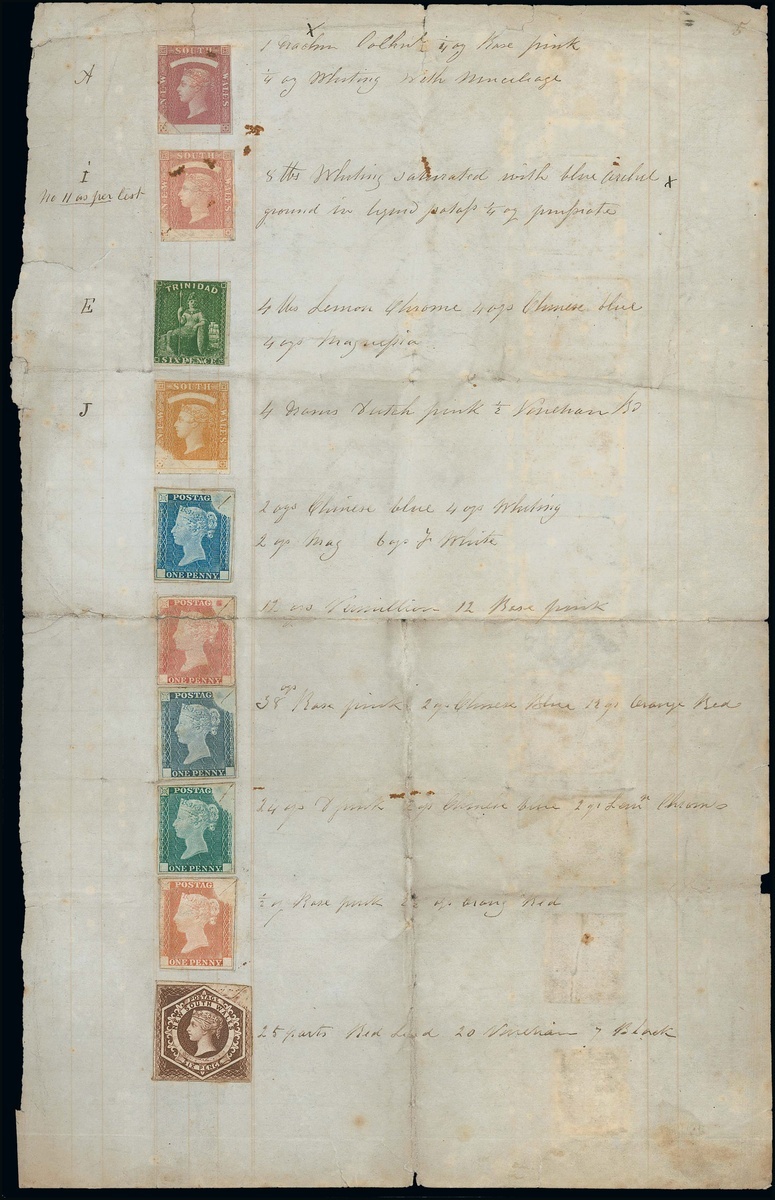 x
5
1 Cochl ¼ oz Rose pink
A
NEW SOUTH WALES
¼ oz Whiting With Muncilage
I
No 11 as per List
NEW SOUTH WALES
8 lbs Whiting saturated with blue x
ground in liquid potash ¼ oz prussiate
E
TRINIDAD
SIX PENCE
4 lbs Lemon Chrome 4 ozs Chinese blue
4 ozs Magnesia
J
NEW SOUTH WALES
4 Dutch pink ½ Venetian
POSTAG
ONE PENNY
2 ozs Chinese blue 4 ozs Whiting
2 ozs Mag 6 ozs White
POSTAG
ONE PENNY
12 ozs Vermillion 12 Rose pink
POSTAG
ONE PENNY
38 ozs Rose pink 2 ozs Chinese Blue 12 ozs Orange Red
POSTAG
ONE PENNY
24 ozs D pink ozs Chinese blue 2 ozs Lemn Chrome
POSTAG
ONE PENNY
½ oz Rose pink ozs Orang Red
POSTAGE
NEW SOUTH WALES
SIX PENCE
25 parts Red Lead 20 Venetian 7 Black